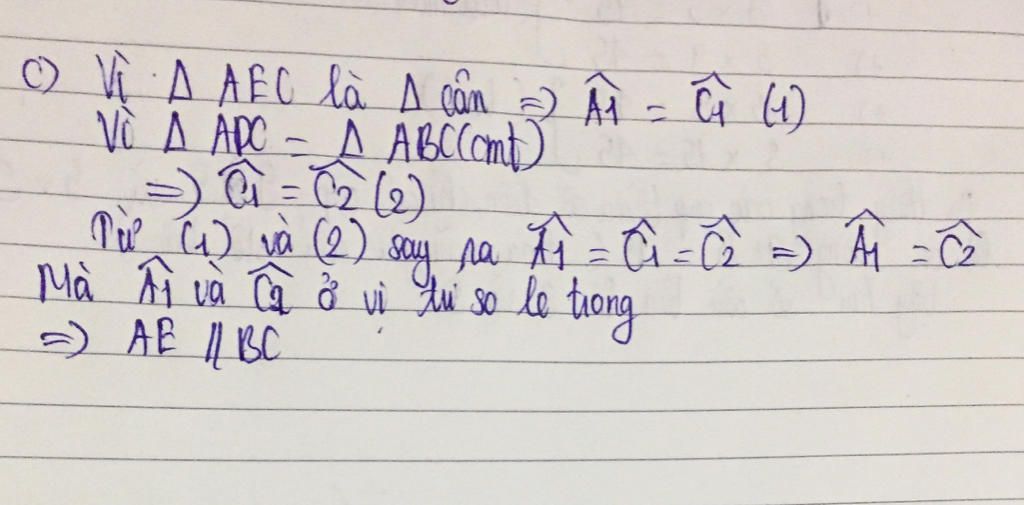 c) Vì Δ AEC là Δ cân => Â1 = Ĉ1 (1)
Vì Δ ADC = Δ ABC (cmt)
=> Ĉ1 = Ĉ2 (2)
Từ (1) và (2) say ra Â1 = Ĉ1 = Ĉ2 => Â1 = Ĉ2
Mà Â1 và Ĉ2 ở vị trí so le trong
=> AE // BC